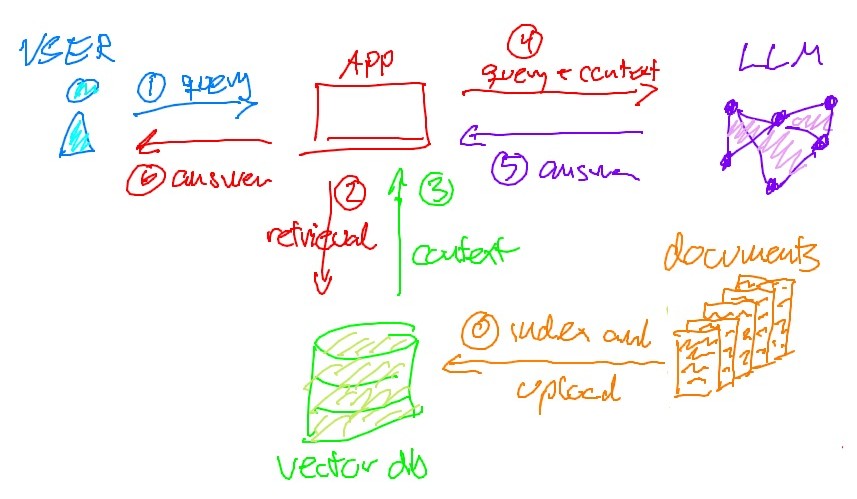 USER
APP
LLM
① query
④
query + context
⑥ answer
⑤ answer
②
retrieval
③
context
documents
⓪ index and
upload
vector db